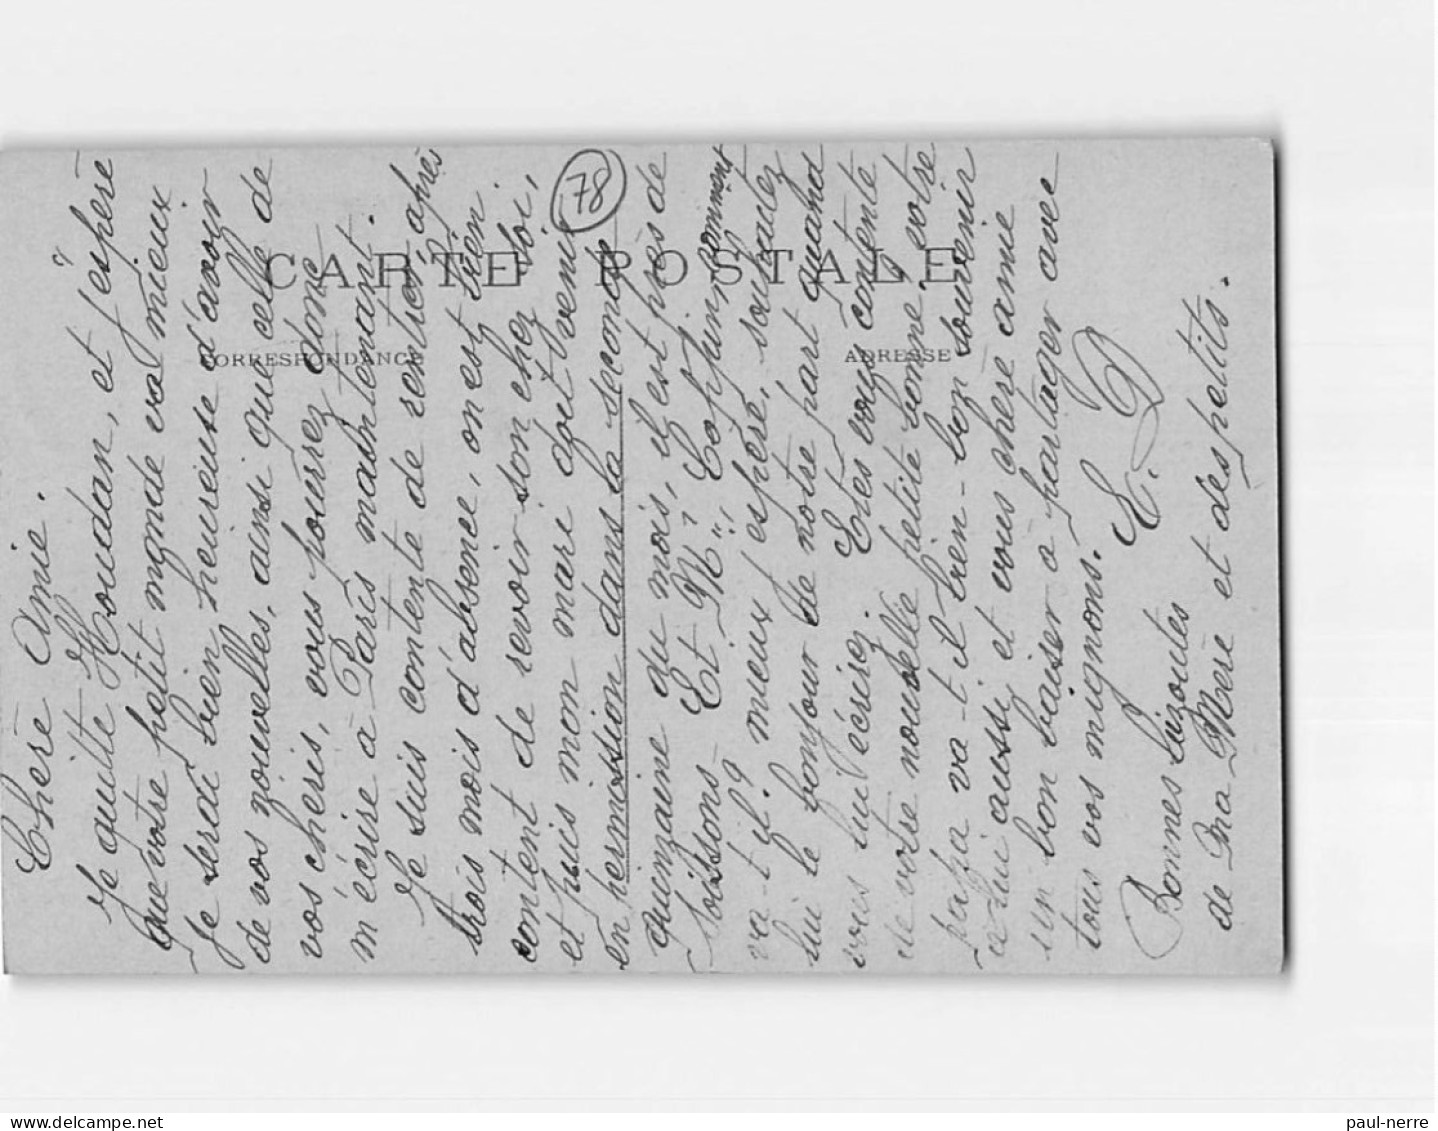 Chère Amie.
Je quitte Houdan, et j'espère
que votre petit monde va mieux
Je serai bien heureuse d'avoir
de vos nouvelles, ainsi que celle de
vos chéris, vous pourrez donc
m'écrire à Paris maintenant.
Je suis contente de rentrer après
trois mois d'absence, on est bien
content de revoir son chez soi,
et puis mon mari doit venir
en permission dans la seconde
quinzaine du mois, il est près de
Soissons. Et Mr Comment
va-t-il? mieux j'espère, souhaitez
lui le bonjour de notre part quand
vous lui écrirez. Êtes vous contente
de votre nouvelle petite bonne, votre
papa va-t-il bien - bon souvenir
à lui aussi et vous chère amie
un bon baiser à partager avec
tous vos mignons. E. D
Bonnes bizoutes
de Ma Mère et des petits.
78
CARTE POSTALE
CORRESPONDANCE
ADRESSE
delcampe.net
paul-nerre